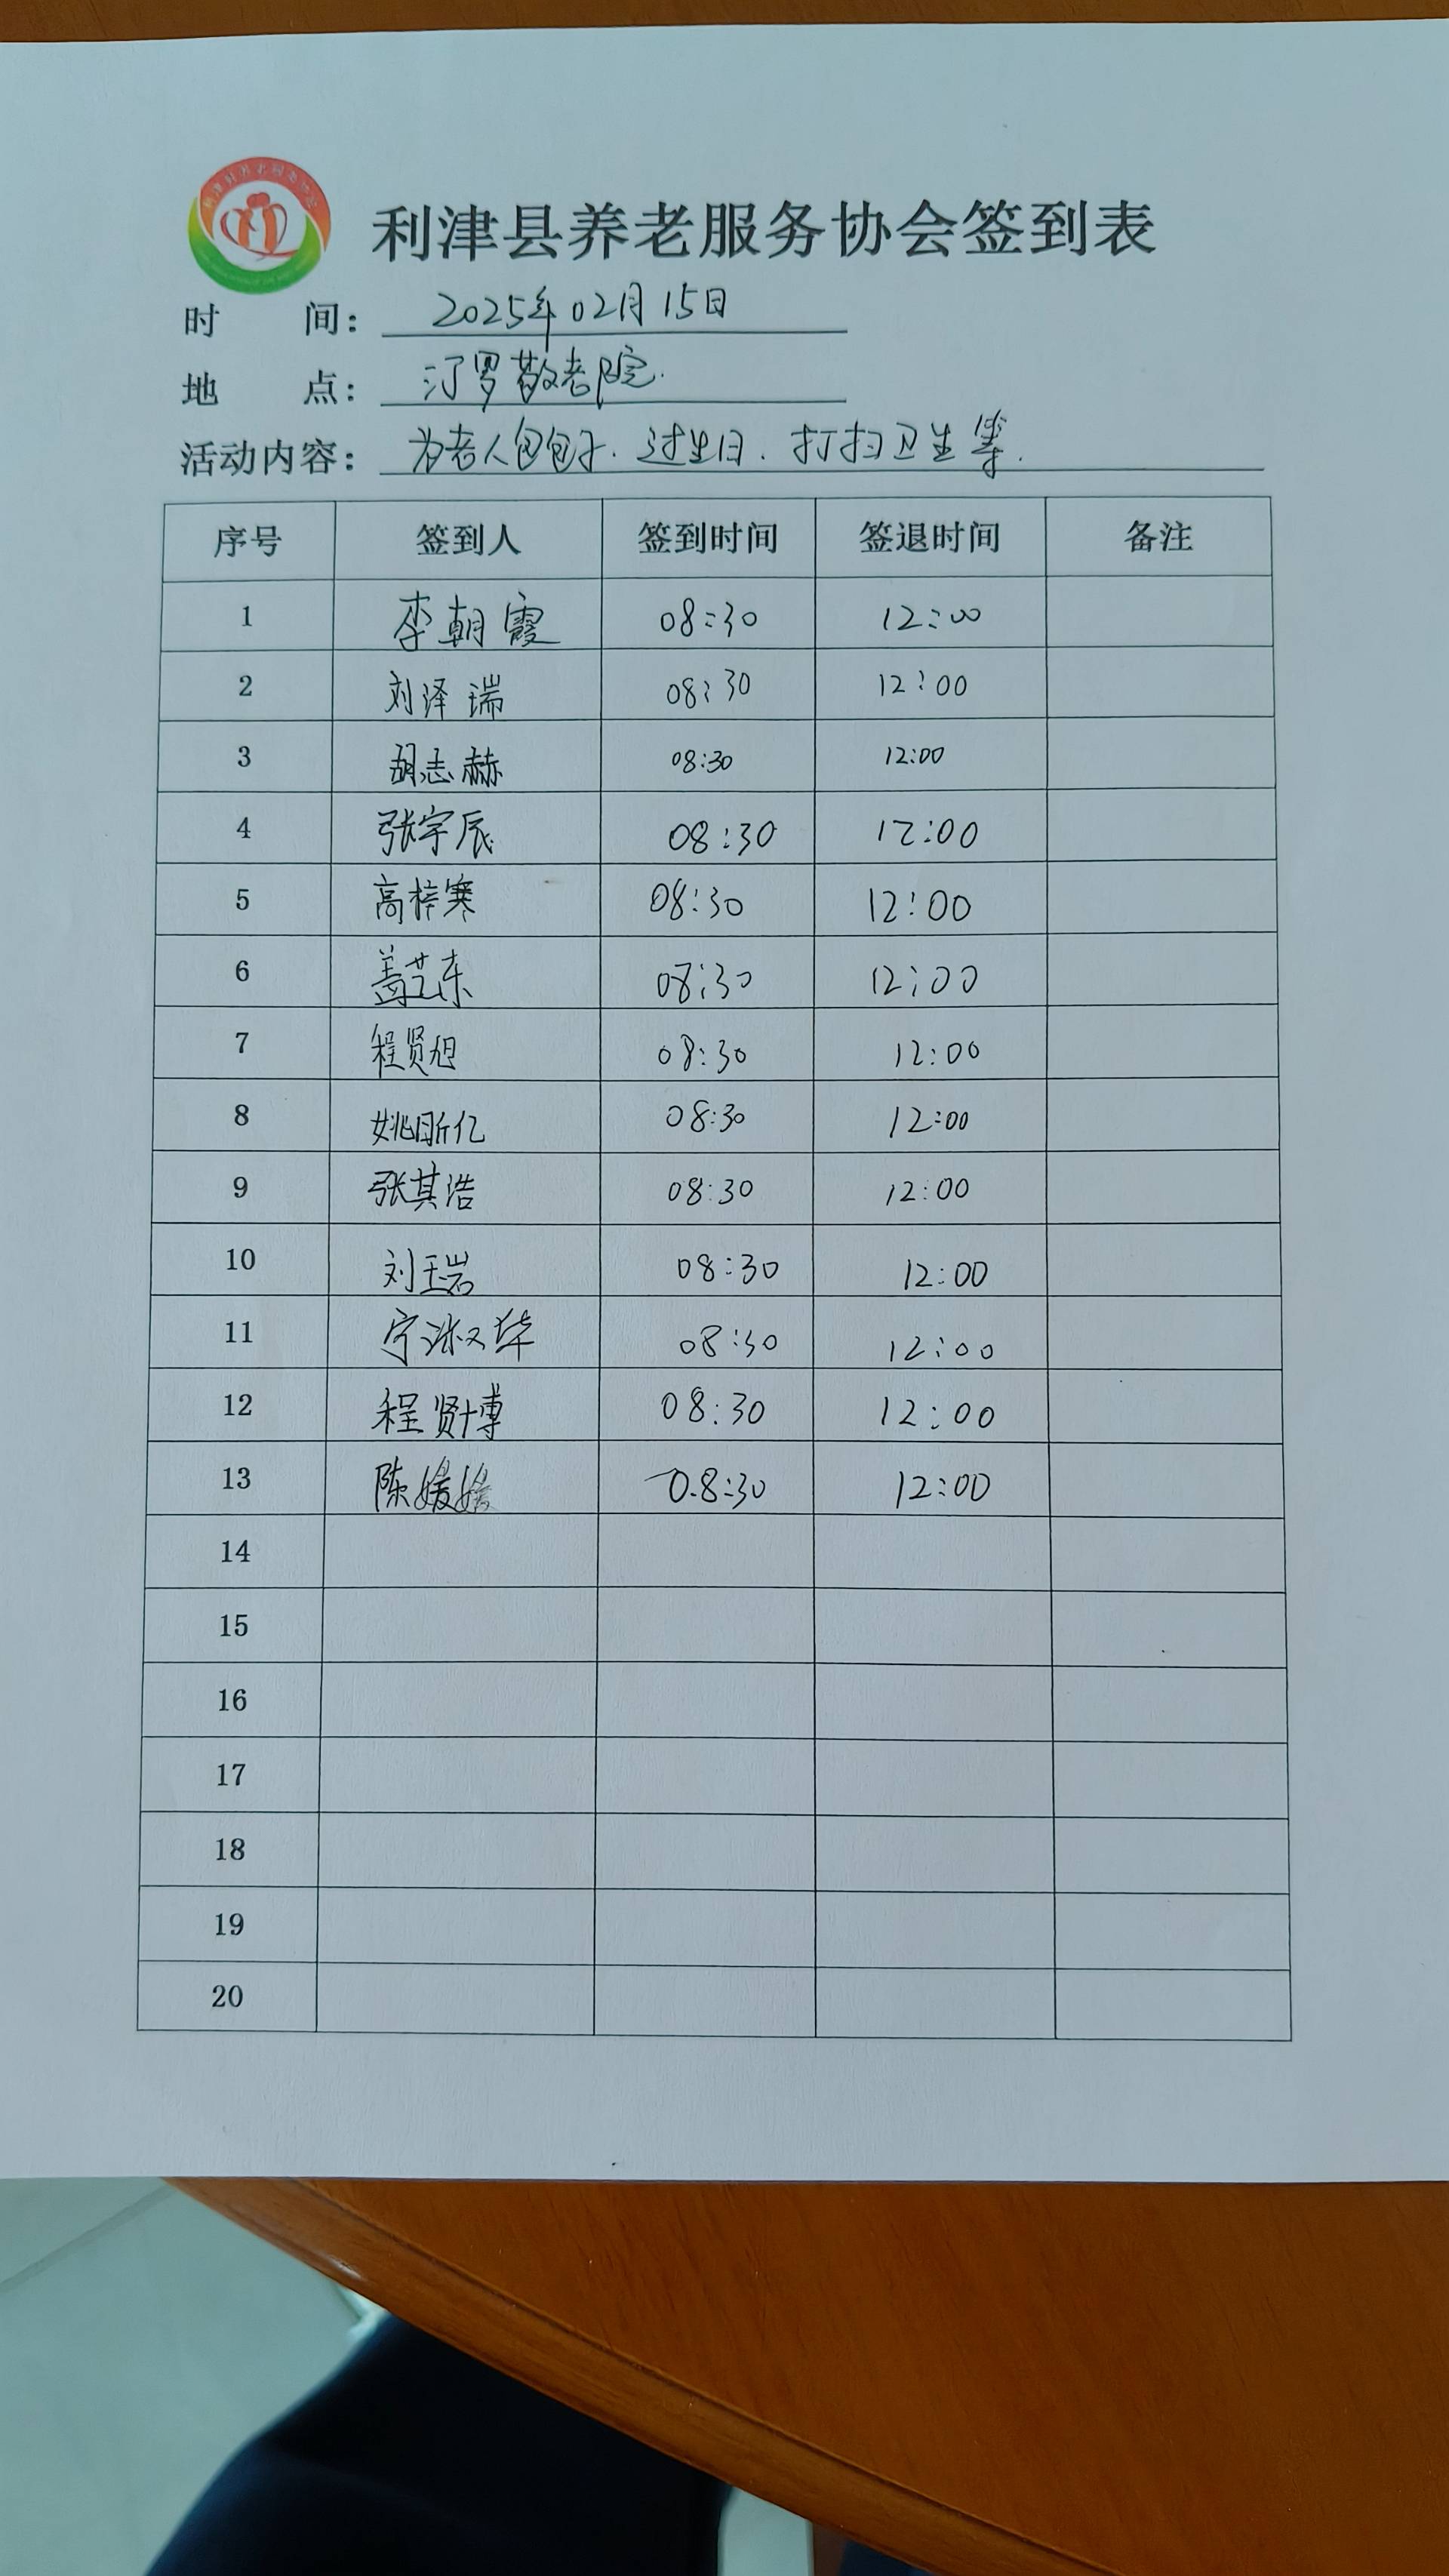 利津县养老服务协会签到表
时 间：2025年02月15日
地 点：汀罗敬老院.
活动内容：为老人包包子.过生日.打扫卫生等.
序号 签到人 签到时间 签退时间 备注
1 李朝霞 08:30 12:00
2 刘泽瑞 08:30 12:00
3 胡志赫 08:30 12:00
4 张宇辰 08:30 12:00
5 高梓寒 08:30 12:00
6 盖艺东 08:30 12:00
7 程贤旭 08:30 12:00
8 姚昕亿 08:30 12:00
9 张其浩 08:30 12:00
10 刘玉岩 08:30 12:00
11 宁淑华 08:30 12:00
12 程贤博 08:30 12:00
13 陈媛媛 08:30 12:00
14
15
16
17
18
19
20